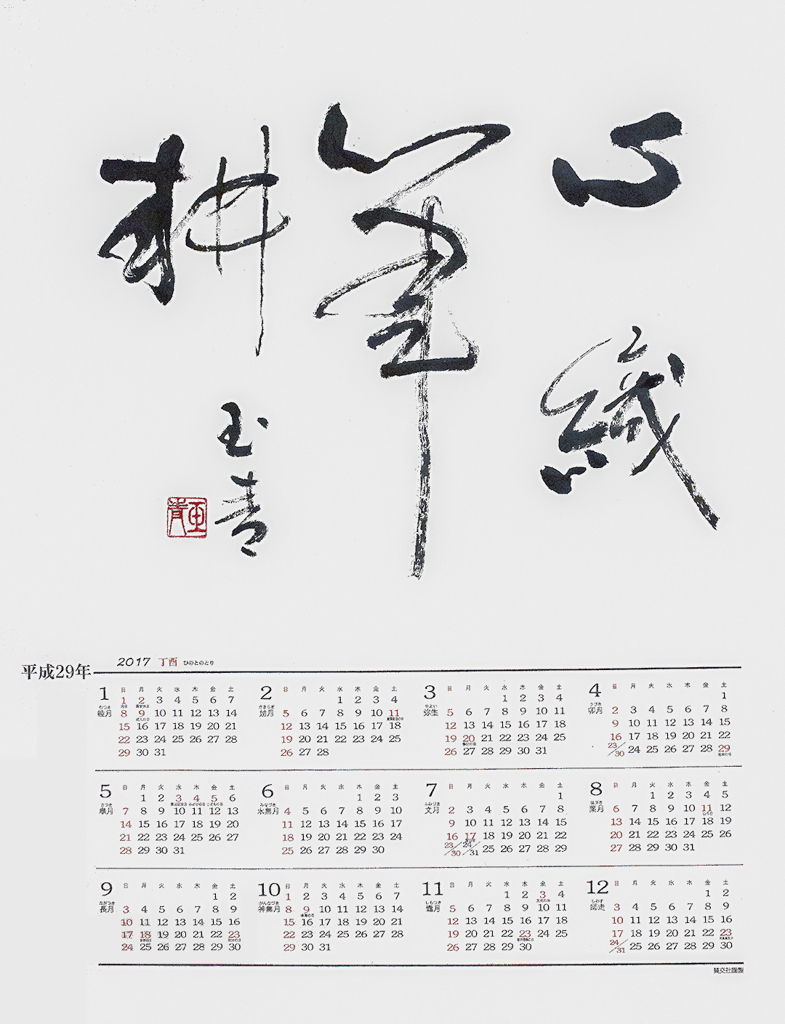 心織
筆
耕
玉青
平成29年
2017 丁酉 ひのとのとり
1
むつき
睦月
日 月 火 水 木 金 土
1 2 3 4 5 6 7
8 9 10 11 12 13 14
15 16 17 18 19 20 21
22 23 24 25 26 27 28
29 30 31
2
きさらぎ
日 月 火 水 木 金 土
1 2 3 4
5 6 7 8 9 10 11
12 13 14 15 16 17 18
19 20 21 22 23 24 25
26 27 28
3
やよい
弥生
日 月 火 水 木 金 土
1 2 3 4
5 6 7 8 9 10 11
12 13 14 15 16 17 18
19 20 21 22 23 24 25
26 27 28 29 30 31
4
うづき
卯月
日 月 火 水 木 金 土
1
2 3 4 5 6 7 8
9 10 11 12 13 14 15
16 17 18 19 20 21 22
23/30 24 25 26 27 28 29
5
さつき
皐月
日 月 火 水 木 金 土
1 2 3 4 5 6
7 8 9 10 11 12 13
14 15 16 17 18 19 20
21 22 23 24 25 26 27
28 29 30 31
6
みなづき
水無月
日 月 火 水 木 金 土
1 2 3
4 5 6 7 8 9 10
11 12 13 14 15 16 17
18 19 20 21 22 23 24
25 26 27 28 29 30
7
ふみづき
文月
日 月 火 水 木 金 土
1
2 3 4 5 6 7 8
9 10 11 12 13 14 15
16 17 18 19 20 21 22
23/30 24/31 25 26 27 28 29
8
はづき
葉月
日 月 火 水 木 金 土
1 2 3 4 5
6 7 8 9 10 11 12
13 14 15 16 17 18 19
20 21 22 23 24 25 26
27 28 29 30 31
9
ながつき
長月
日 月 火 水 木 金 土
1 2
3 4 5 6 7 8 9
10 11 12 13 14 15 16
17 18 19 20 21 22 23
24 25 26 27 28 29 30
10
かんなづき
神無月
日 月 火 水 木 金 土
1 2 3 4 5 6 7
8 9 10 11 12 13 14
15 16 17 18 19 20 21
22 23 24 25 26 27 28
29 30 31
11
しもつき
霜月
日 月 火 水 木 金 土
1 2 3 4
5 6 7 8 9 10 11
12 13 14 15 16 17 18
19 20 21 22 23 24 25
26 27 28 29 30
12
しわす
師走
日 月 火 水 木 金 土
1 2
3 4 5 6 7 8 9
10 11 12 13 14 15 16
17 18 19 20 21 22 23
24/31 25 26 27 28 29 30